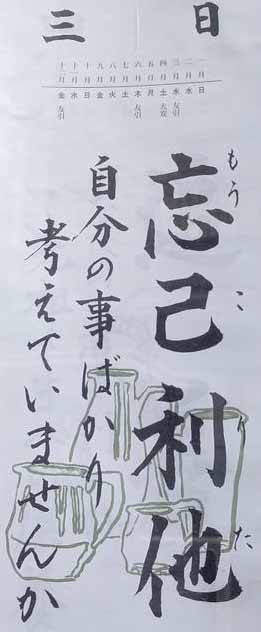 三日
一月 日
二月 水
三月 水 友引
四月 土 大安
五月 月
六月 木 友引
七月 土
八月 火
九月 金
十月 日
十一月 水
十二月 金 友引
もうこりた
忘己利他
自分の事ばかり
考えていませんか